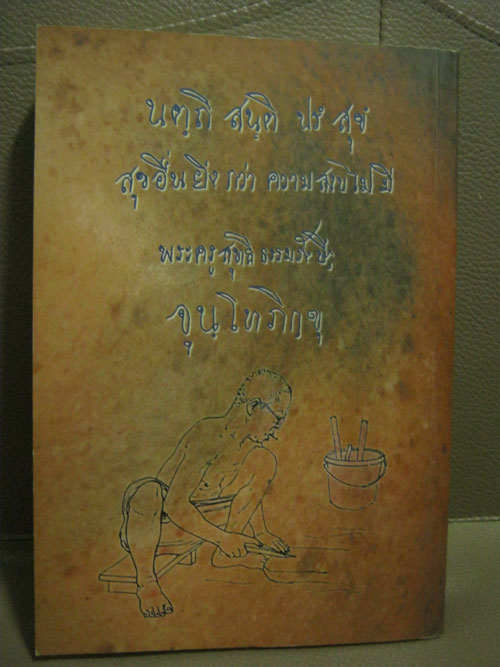 นตฺถิ สนฺติ ปรํ สุขํ
สุขอื่นยิ่งกว่า ความสงบไม่มี
พระครูสุทธิธรรมรังษี
จุนฺโทภิกขุ